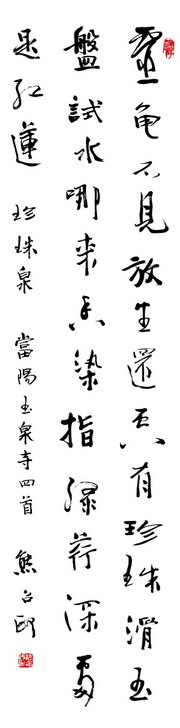 靈龜不見放生還只有珍珠滑玉
盤試水哪来香染指綠荇深處
是紅蓮 珍珠泉 當陽玉泉寺四首 熊召政